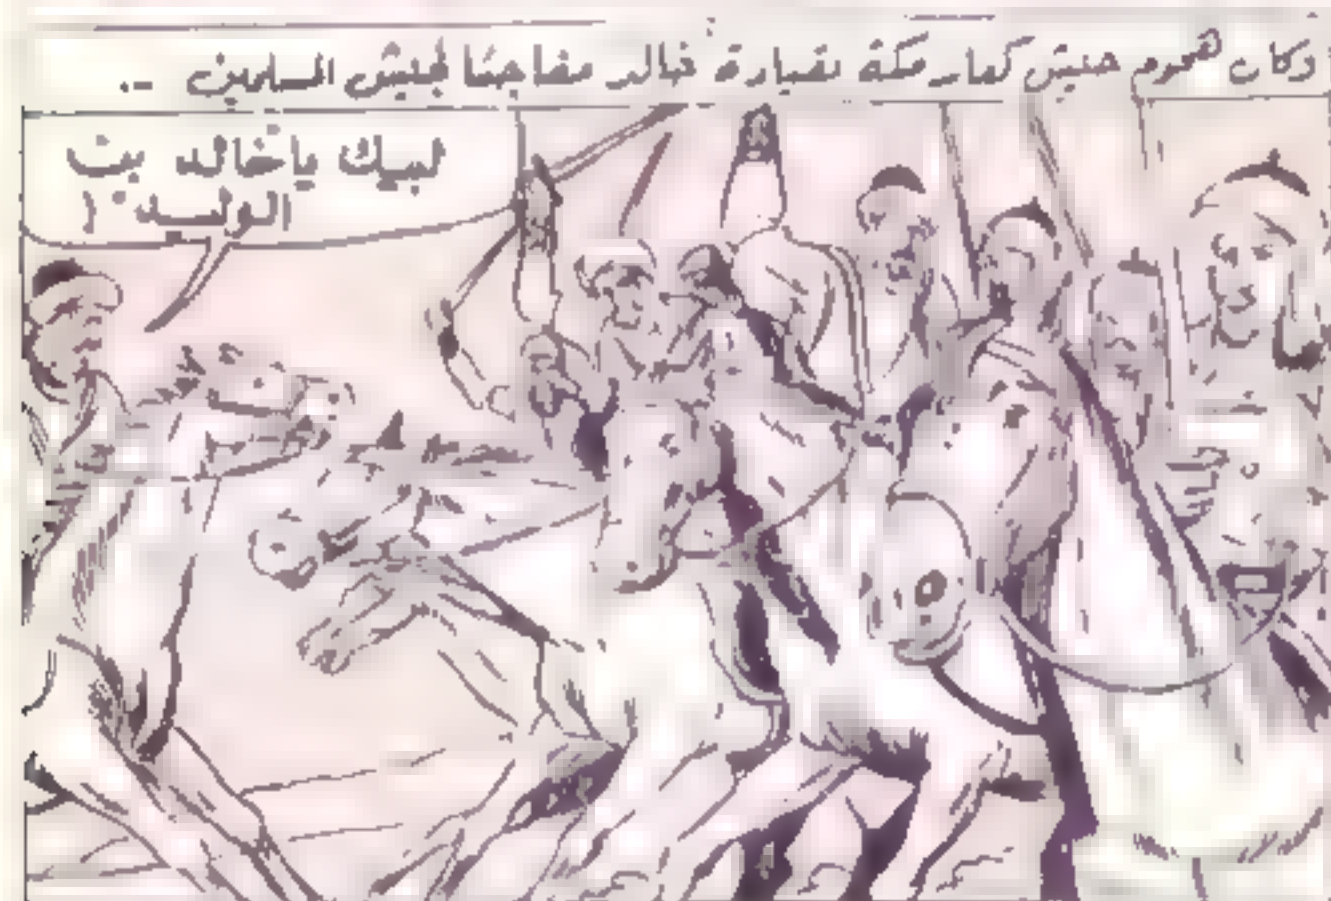 وكان هجوم جيش كفار مكة بقيادة خالد مفاجئا لجيش المسلمين ..
لبيك يا خالد بن
الوليد !